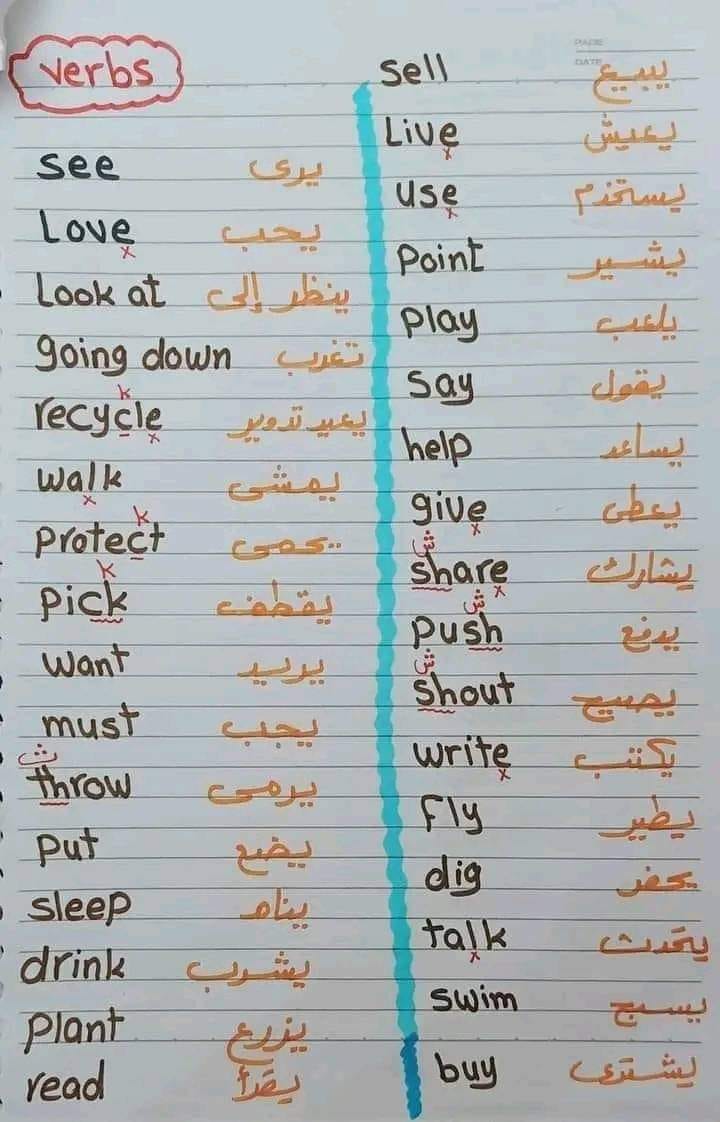 verbs
see يرى
Love يحب
Look at ينظر إلى
going down تغرب
k
recycle يعيد تدوير
walk يمشى
k
protect يحمى
k
pick يقطف
want يريد
must يجب
ث
throw يرمى
put يضع
sleep ينام
drink يشرب
plant يزرع
read يقرأ
PAGE
DATE
sell يبيع
Live يعيش
use يستخدم
Point يشير
play يلعب
say يقول
help يساعد
give يعطى
ش
share يشارك
ش
push يدفع
ش
shout يصيح
write يكتب
Fly يطير
dig يحفر
talk يتحدث
swim يسبح
buy يشترى